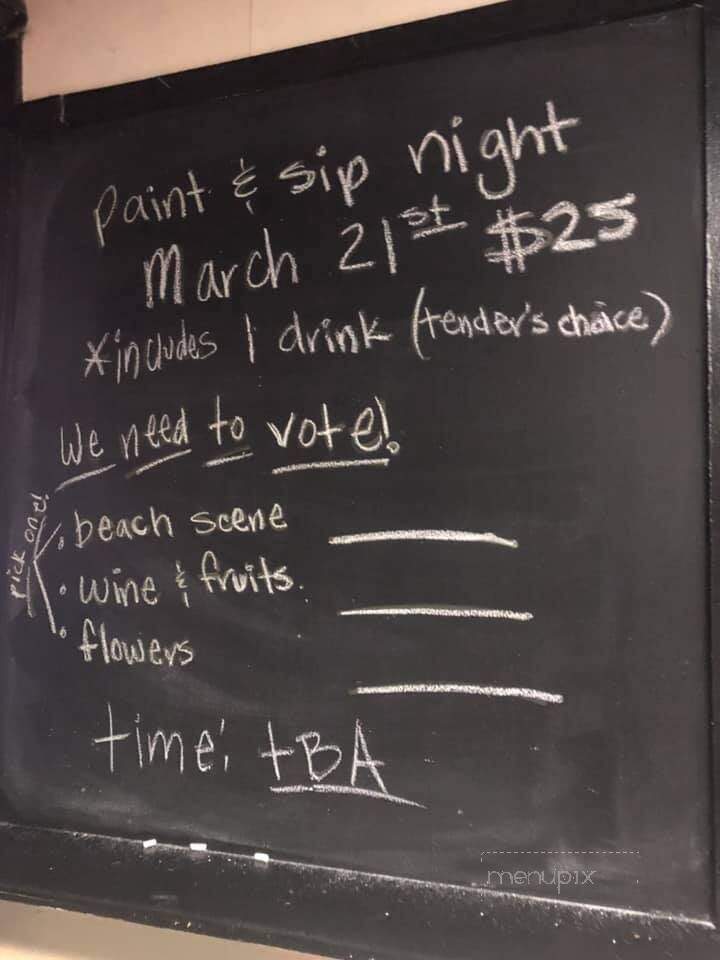 Paint & sip night
March 21st $25
*includes 1 drink (tender's choice)
We need to vote!
pick one!
• beach scene
• wine & fruits.
• flowers
time: tBA
menupix